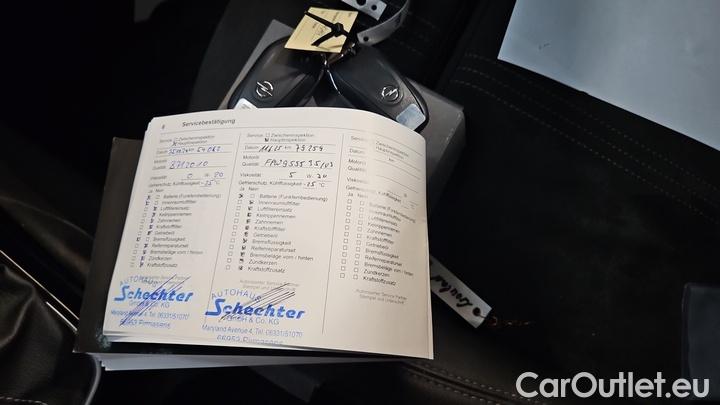 6 Servicebestätigung
Service: Zwischeninspektion
Hauptinspektion
Datum km 54062
Motoröl
Qualität: 8712010
Viskosität: 0 W. 20
Gefrierschutz, Kühlflüssigkeit: -25 °C
Ja Nein
Batterie (Funkfernbedienung)
Innenraumluftfilter
Luftfiltereinsatz
Keilrippenriemen
Zahnriemen
Kraftstofffilter
Getriebeöl
Bremsflüssigkeit
Reifenreparaturset
Bremsbeläge vorn / hinten
Zündkerzen
Kraftstoffzusatz
AUTOHAUS
Schechter
GmbH & Co. KG
Maryland Avenue 4, Tel. 06331/51070
66953 Pirmasens
Service: Zwischeninspektion
Hauptinspektion
Datum km 79259
Motoröl
Qualität:
Viskosität: 5 W. 30
Gefrierschutz, Kühlflüssigkeit: -25 °C
Ja Nein
Batterie (Funkfernbedienung)
Innenraumluftfilter
Luftfiltereinsatz
Keilrippenriemen
Zahnriemen
Kraftstofffilter
Getriebeöl
Bremsflüssigkeit
Reifenreparaturset
Bremsbeläge vorn / hinten
Zündkerzen
Kraftstoffzusatz
Autorisierter Service Partner
Stempel und Unterschrift
AUTOHAUS
Schechter
GmbH & Co. KG
Maryland Avenue 4, Tel. 06331/51070
66953 Pirmasens
Service: Zwischeninspektion
Hauptinspektion
Datum km
Motoröl
Qualität:
Viskosität: W.
Gefrierschutz, Kühlflüssigkeit: °C
Ja Nein
Batterie (Funkfernbedienung)
Innenraumluftfilter
Luftfiltereinsatz
Keilrippenriemen
Zahnriemen
Kraftstofffilter
Getriebeöl
Bremsflüssigkeit
Reifenreparaturset
Bremsbeläge vorn / hinten
Zündkerzen
Kraftstoffzusatz
Autorisierter Service Partner
Stempel und Unterschrift
CarOutlet.eu